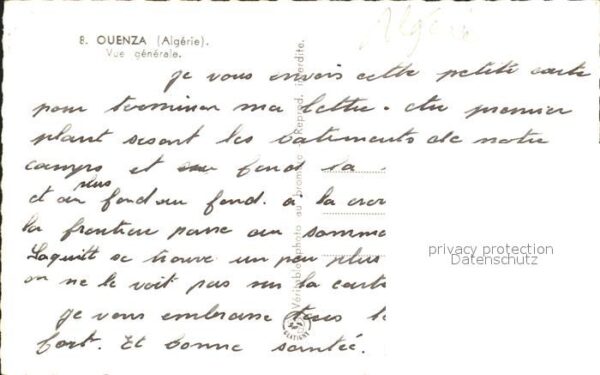 8. OUENZA (Algérie).
Vue générale.
Algérie
je vous envois cette petite carte
pour terminer ma lettre. Au premier
plant sesont les batements de notre
camps et au fond la
et au plus fond au fond. à la
la frontier passe au somme
se trouve un peu plus
on ne le voit pas sur la carte
je vous embrasse tous
fort. Et bonne santée.
Véritable photo au bromure - Reprod. interdite.
privacy protection
Datenschutz